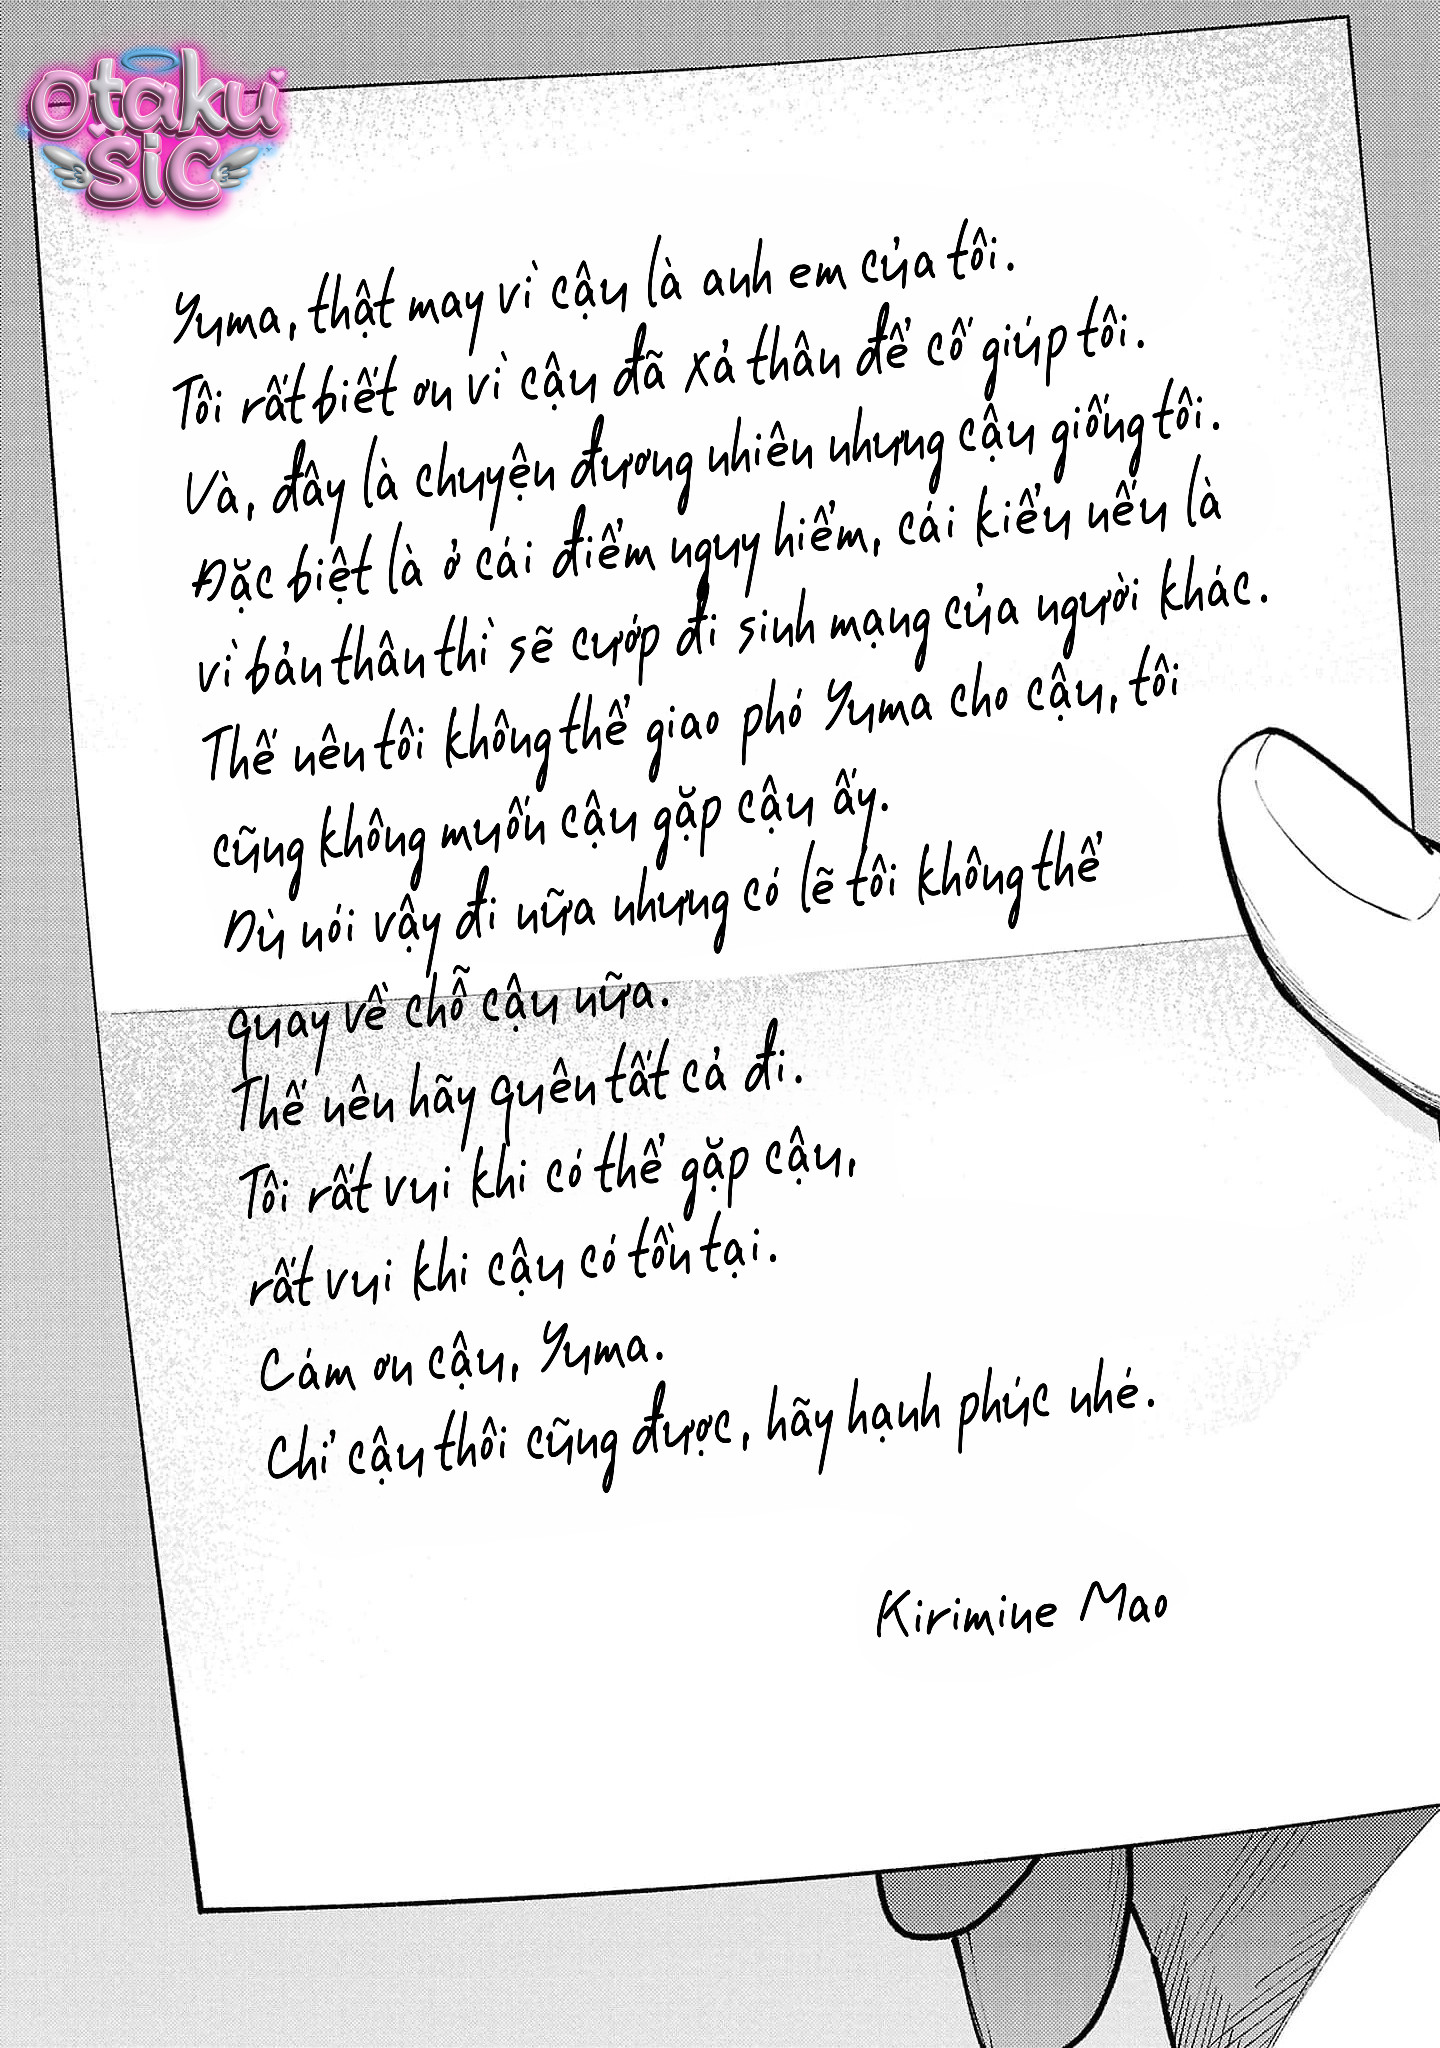 Otaku
SiC
Yuma, thật may vì cậu là anh em của tôi.
Tôi rất biết ơn vì cậu đã xả thân để cố giúp tôi.
Và, đây là chuyện đương nhiên nhưng cậu giống tôi.
Đặc biệt là ở cái điểm nguy hiểm, cái kiểu nếu là
vì bản thân thì sẽ cướp đi sinh mạng của người khác.
Thế nên tôi không thể giao phó Yuma cho cậu, tôi
cũng không muốn cậu gặp cậu ấy.
Dù nói vậy đi nữa nhưng có lẽ tôi không thể
quay về chỗ cậu nữa.
Thế nên hãy quên tất cả đi.
Tôi rất vui khi có thể gặp cậu,
rất vui khi cậu có tồn tại.
Cám ơn cậu, Yuma.
Chỉ cậu thôi cũng được, hãy hạnh phúc nhé.
Kirimine Mao